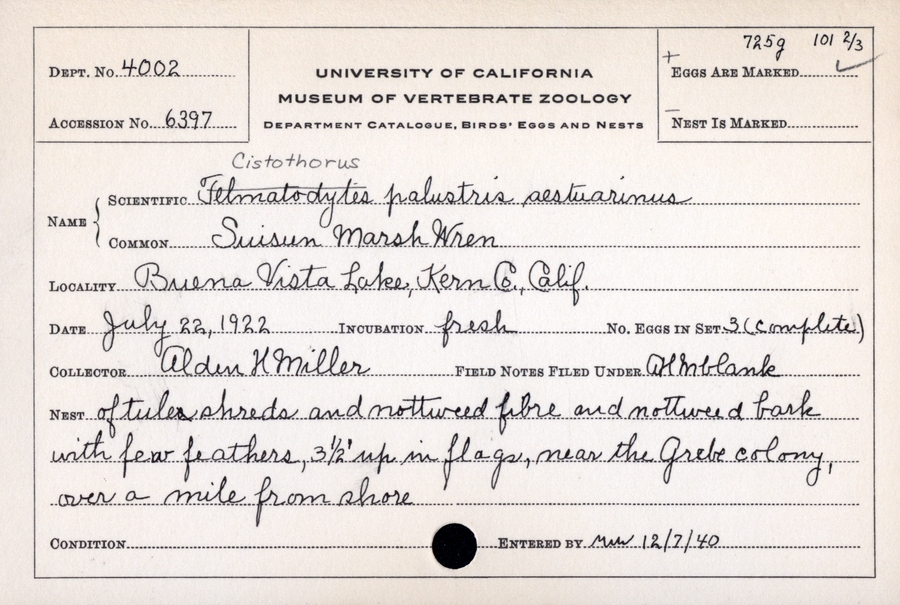 725g 101 2/3
Dept. No. 4002
UNIVERSITY OF CALIFORNIA
+ Eggs Are Marked ✓
MUSEUM OF VERTEBRATE ZOOLOGY
Accession No. 6397
Department Catalogue, Birds' Eggs and Nests
– Nest Is Marked
Cistothorus
Name { Scientific Telmatodytes palustris aestuarinus
Common Suisun Marsh Wren
Locality Buena Vista Lake, Kern Co., Calif.
Date July 22, 1922 Incubation fresh No. Eggs in Set 3 (complete)
Collector Alden H Miller Field Notes Filed Under AHM blank
Nest of tules shreds and nottweed fibre and nottweed bark
with few feathers, 3½' up in flags, near the Grebe colony,
over a mile from shore
Condition Entered by 12/7/40